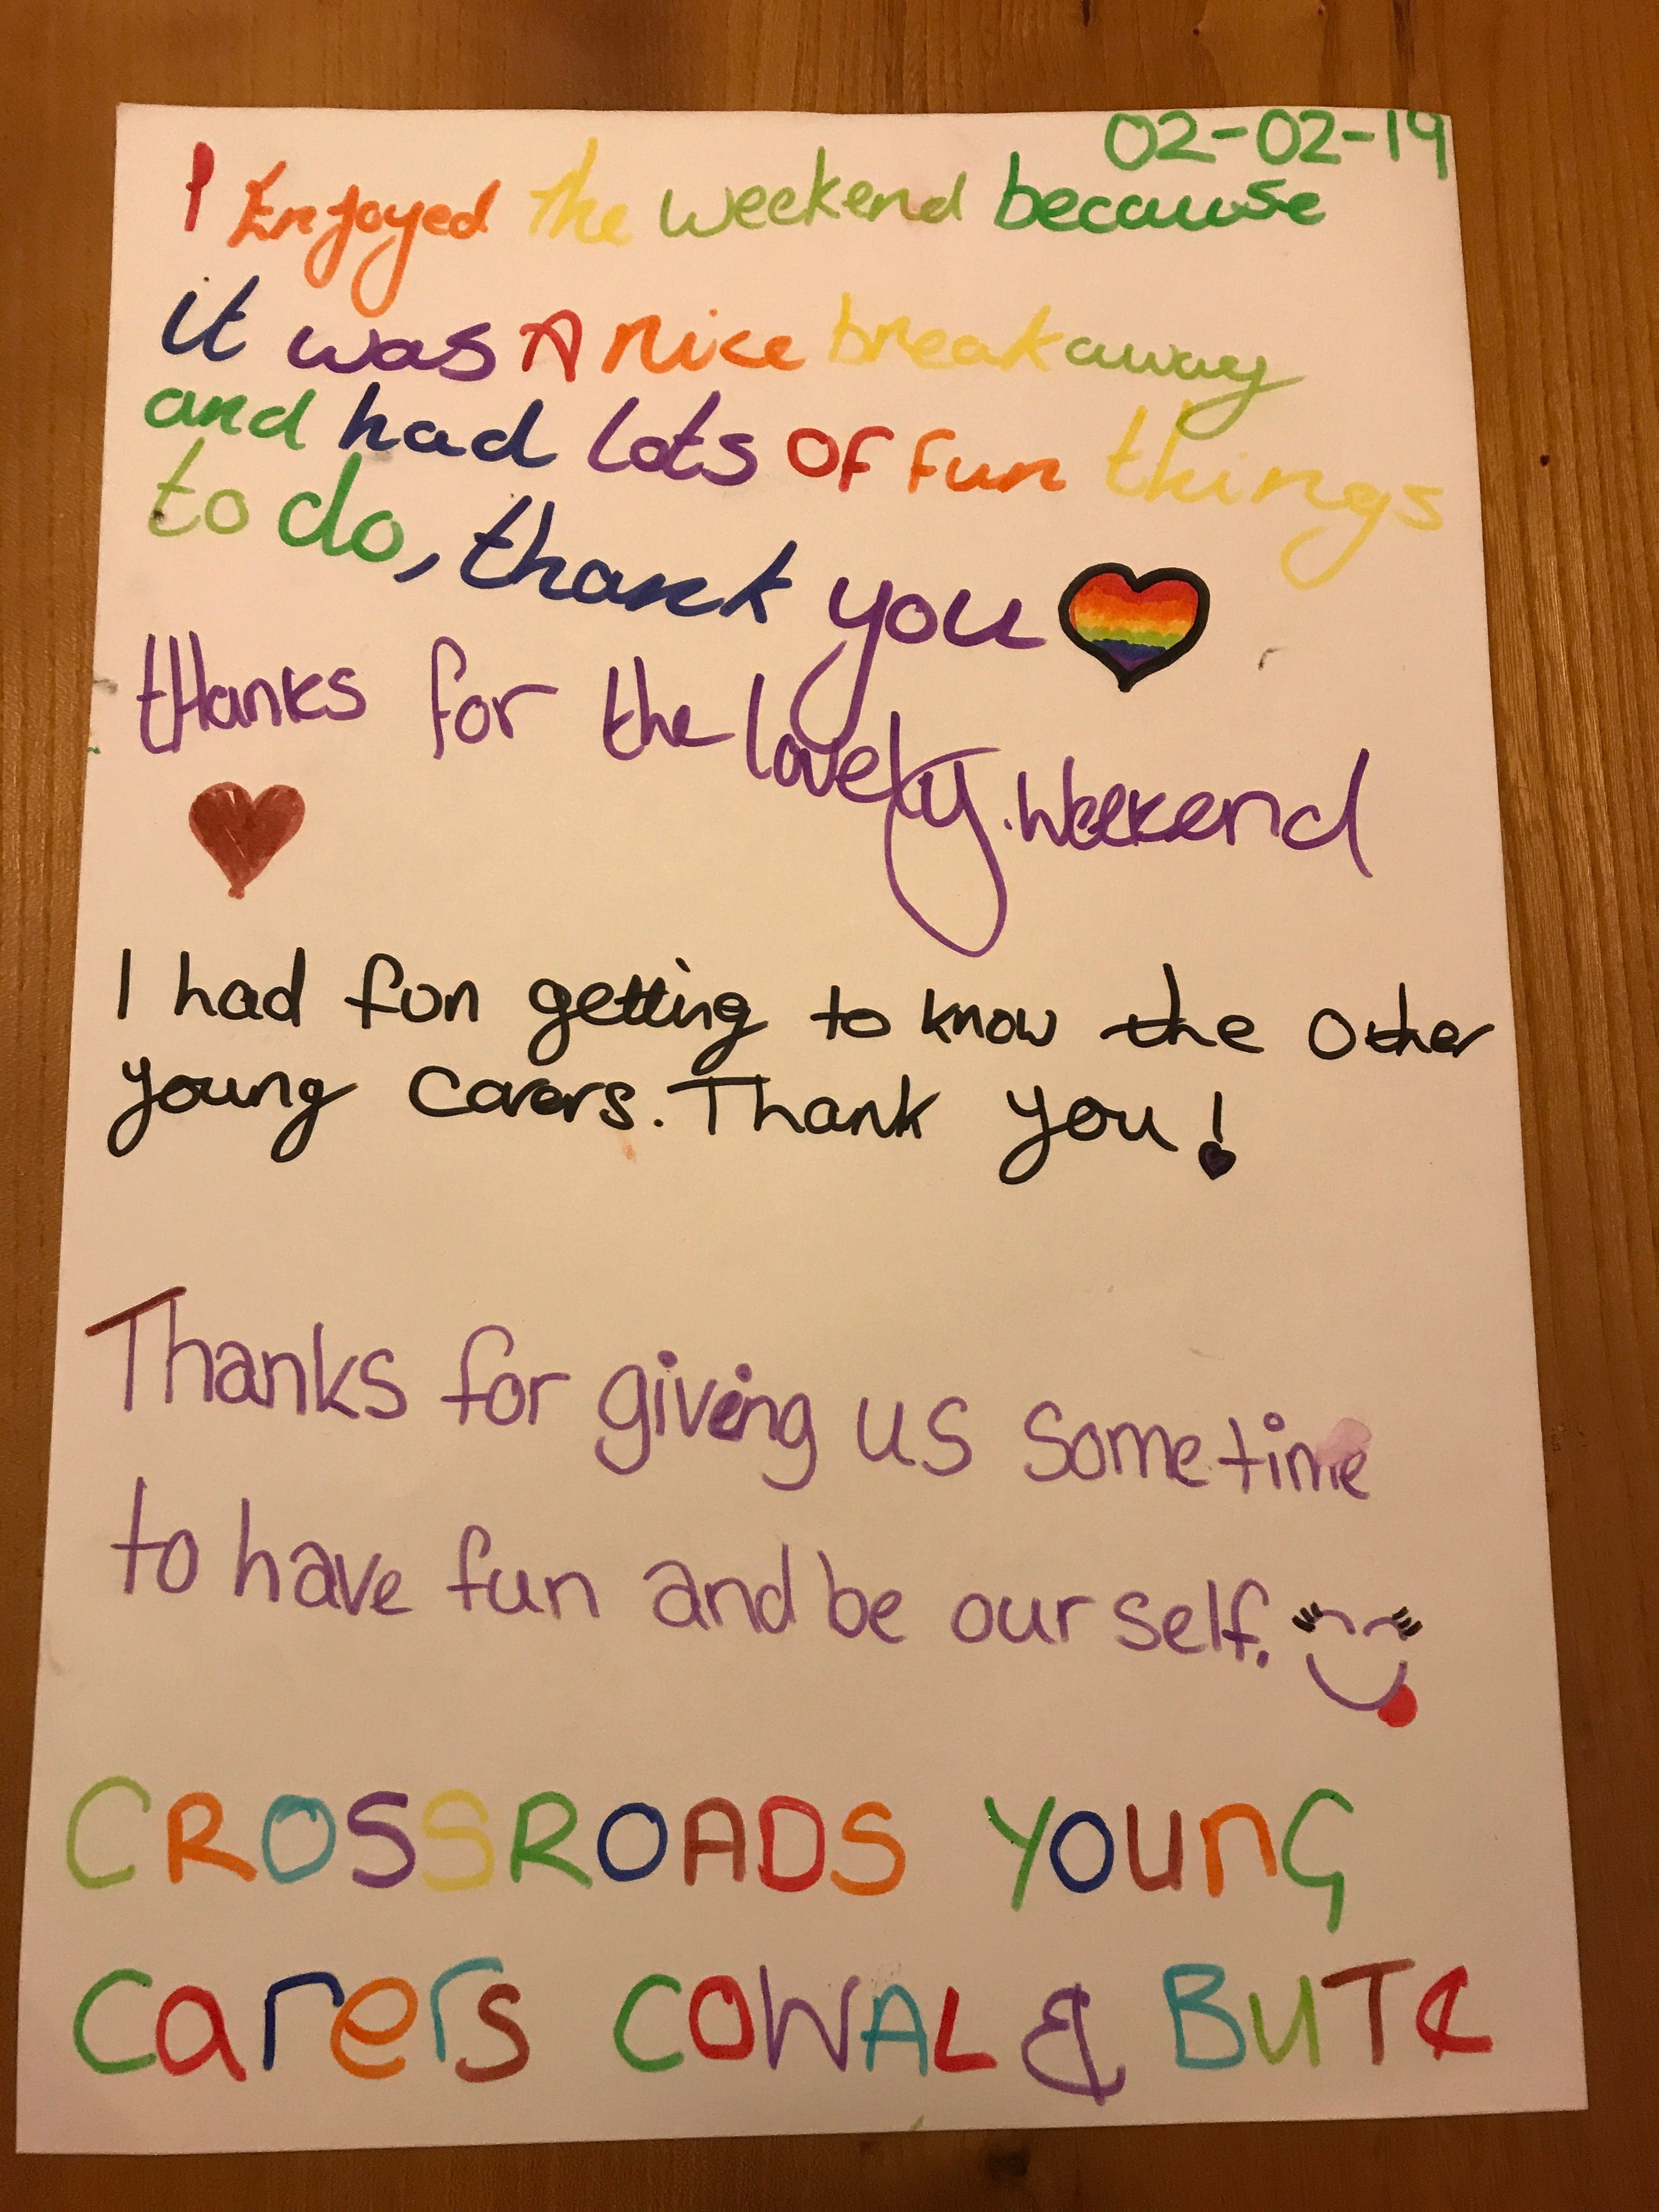 02-02-19
I Enjoyed the weekend because
it was A nice break away
and had lots of fun things
to do, thank you
thanks for the lovely. Weekend
I had fun getting to know the other
young Carers. Thank you!
Thanks for giving us some time
to have fun and be our self.
CROSSROADS YounG
Carers COWAL & BUTE